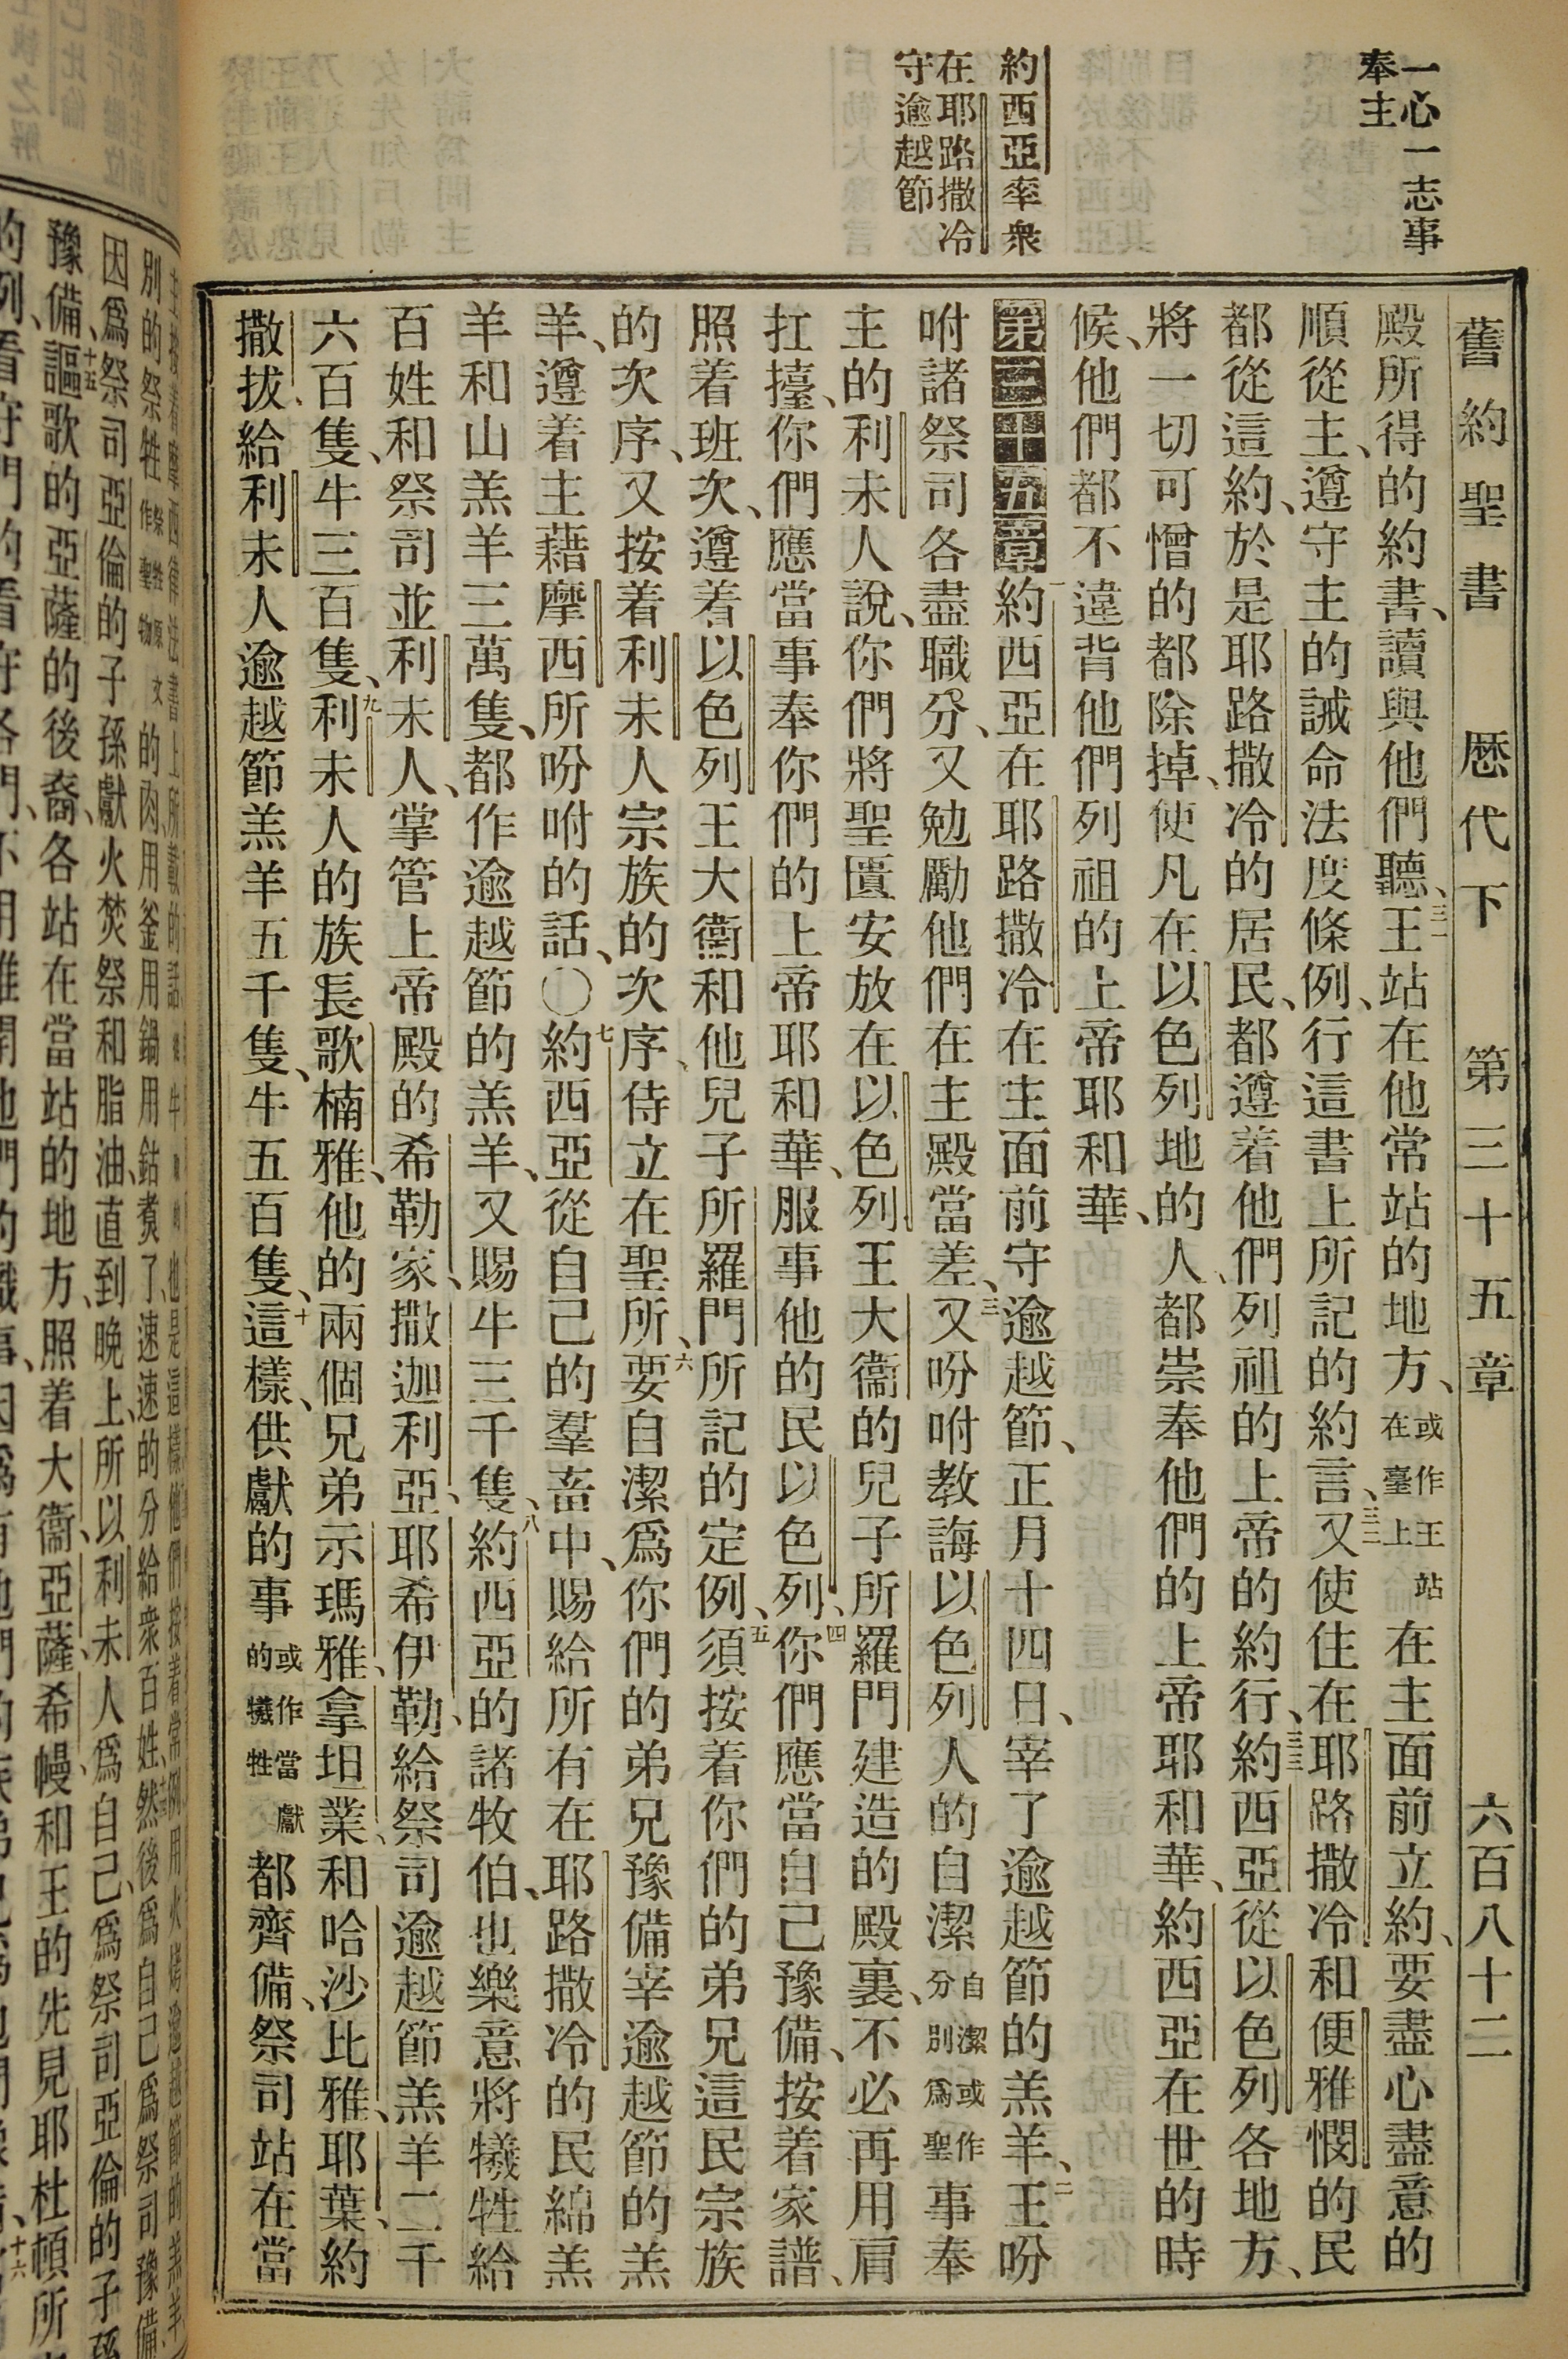 一心一志事
奉主
約西亞率衆
在耶路撒冷
守逾越節
舊約聖書 歷代下 第三十五章 六百八十二
殿所得的約書、讀與他們聽、三一王站在他常站的地方、或作王站在臺上在主面前立約、要盡心盡意的
順從主、遵守主的誡命法度條例、行這書上所記的約言、三二又使住在耶路撒冷和便雅憫的民
都從這約、於是耶路撒冷的居民、都遵着他們列祖的上帝的約行、三三約西亞從以色列各地方、
將一切可憎的都除掉、使凡在以色列地的人、都崇奉他們的上帝耶和華、約西亞在世的時
候、他們都不違背他們列祖的上帝耶和華、
第三十五章 一約西亞在耶路撒冷在主面前守逾越節、正月十四日、宰了逾越節的羔羊、二王吩
咐諸祭司各盡職分、又勉勵他們在主殿當差、三又吩咐教誨以色列人的自潔自潔或作分別爲聖事奉
主的利未人說、你們將聖匱安放在以色列王大衞的兒子所羅門建造的殿裏、不必再用肩
扛擡、你們應當事奉你們的上帝耶和華、服事他的民以色列、四你們應當自己豫備、按着家譜、
照着班次、遵着以色列王大衞和他兒子所羅門所記的定例、五須按着你們的弟兄這民宗族
的次序、又按着利未人宗族的次序、侍立在聖所、六要自潔爲你們的弟兄豫備宰逾越節的羔
羊、遵着主藉摩西所吩咐的話、〇七約西亞從自己的羣畜中、賜給所有在耶路撒冷的民綿羔
羊和山羔羊三萬隻、都作逾越節的羔羊、又賜牛三千隻、八約西亞的諸牧伯、也樂意將犧牲給
百姓和祭司並利未人、掌管上帝殿的希勒家、撒迦利亞、耶希伊勒、給祭司逾越節羔羊二千
六百隻、牛三百隻、九利未人的族長歌楠雅、他的兩個兄弟示瑪雅、拿坦業、和哈沙比雅、耶葉、約
撒拔、給利未人逾越節羔羊五千隻、牛五百隻、十這樣、供獻的事或作當獻的犧牲都齊備、祭司站在當
別的祭牲
的肉用釜用鍋用鈷煑了速速的分給衆百姓、然後爲自己爲祭司豫備
因爲祭司亞倫的子孫獻火焚祭和脂油、直到晚上、所以利未人爲自己、爲祭司亞倫的子孫
豫備、十五謳歌的亞薩的後裔、各站在當站的地方、照着大衞、亞薩、希幔和王的先見耶杜頓所